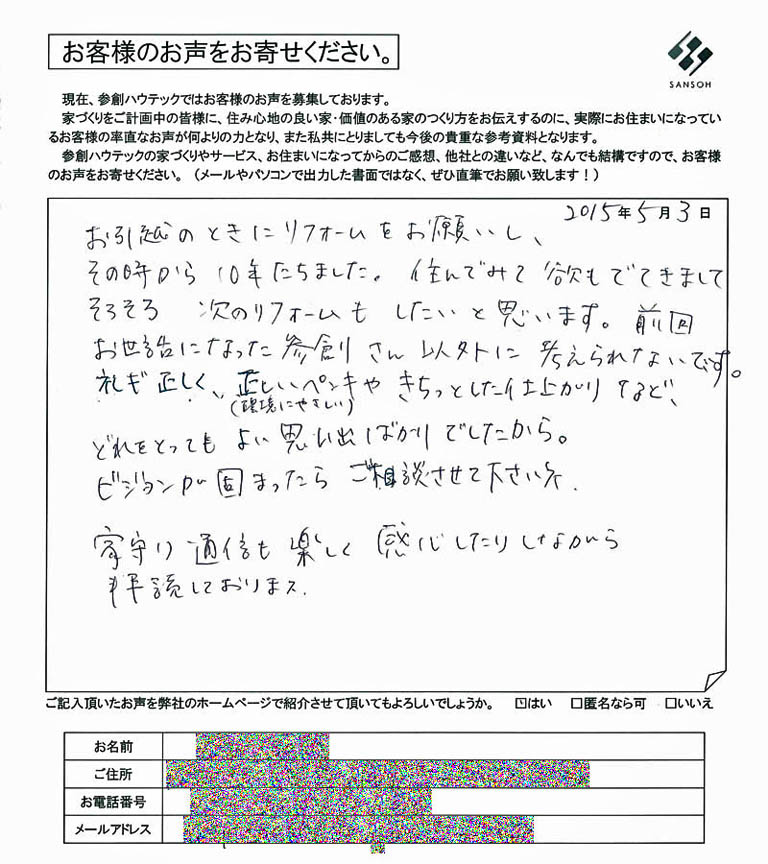 お客様のお声をお寄せください。
SANSOH
現在、参創ハウテックではお客様のお声を募集しております。
家づくりをご計画中の皆様に、住み心地の良い家・価値のある家のつくり方をお伝えするのに、実際にお住まいになってい
るお客様の率直なお声が何よりの力となり、また私共にとりましても今後の貴重な参考資料となります。
参創ハウテックの家づくりやサービス、お住まいになってからのご感想、他社との違いなど、なんでも結構ですので、お客様
のお声をお寄せください。（メールやパソコンで出力した書面ではなく、ぜひ直筆でお願い致します！）
2015年5月3日
お引越のときにリフォームをお願いし、
その時から10年たちました。住んでみて欲もでてきまして
そろそろ 次のリフォームも したいと思います。前回
お世話になった参創さん以外に考えられないです。
礼ギ正しく、正しいペンキや きちっとした仕上がりなど、
（環境にやさしい）
どれをとってもよい思い出ばかりでしたから。
ビジョンが固まったらご相談させて下さい。
家守り通信も楽しく感心したりしながら
拝読しております。
ご記入頂いたお声を弊社のホームページで紹介させて頂いてもよろしいでしょうか。 ☑はい □匿名なら可 □いいえ
お名前
ご住所
お電話番号
メールアドレス